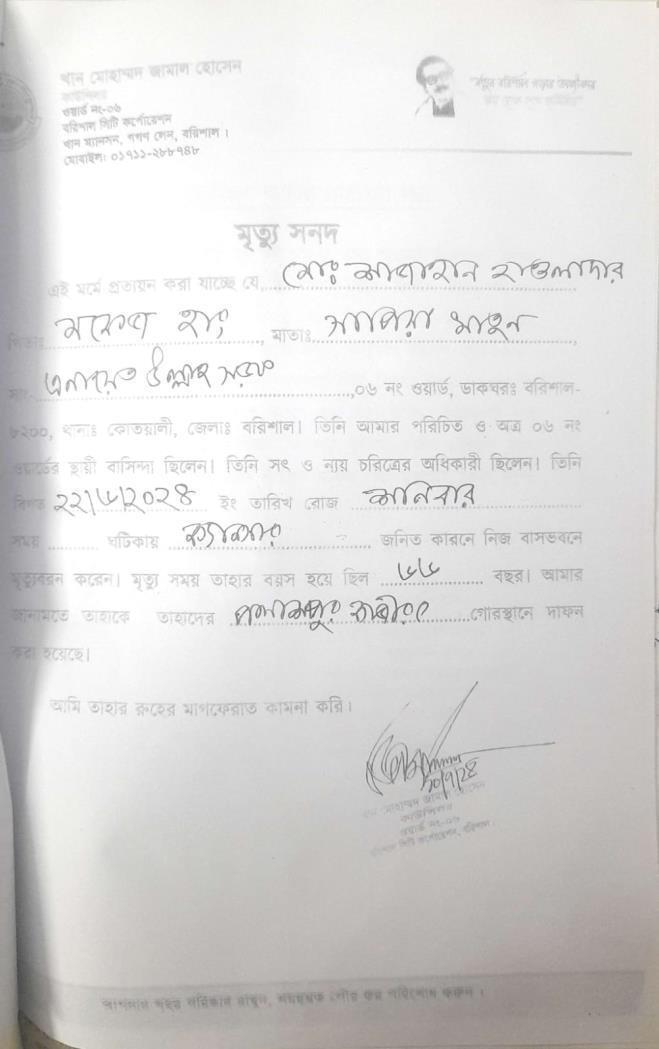 খান মোহাম্মদ জামাল হোসেন
কাউন্সিলর
ওয়ার্ড নং-০৬
বরিশাল সিটি কর্পোরেশন
খান ম্যানসন, গগণ লেন, বরিশাল ।
মোবাইলঃ ০১৭১১-২৮৮৭৪৮
মৃত্যু সনদ
এই মর্মে প্রত্যয়ন করা যাচ্ছে যে, মোঃ হাওলাদার
পিতাঃ হাং, মাতাঃ খাতুন,
সাং- উল্লাহ সড়ক,০৬ নং ওয়ার্ড, ডাকঘরঃ বরিশাল-
৮২০০, থানাঃ কোতয়ালী, জেলাঃ বরিশাল। তিনি আমার পরিচিত ও অত্র ০৬ নং
ওয়ার্ডের স্থায়ী বাসিন্দা ছিলেন। তিনি সৎ ও ন্যায় চরিত্রের অধিকারী ছিলেন। তিনি
বিগত ২২/৬/২০২৪ ইং তারিখ রোজ শনিবার
সময় ঘটিকায় জনিত কারনে নিজ বাসভবনে
মৃত্যুবরন করেন। মৃত্যু সময় তাহার বয়স হয়ে ছিল ৬৬ বছর। আমার
জানামতে তাহাকে তাহাদের গোরস্থানে দাফন
করা হয়েছে।
আমি তাহার রুহের মাগফেরাত কামনা করি।
১০/৭/২৪
খান মোহাম্মদ জামাল হোসেন
কাউন্সিলর
ওয়ার্ড নং-০৬
বরিশাল সিটি কর্পোরেশন, বরিশাল।
আপনার শহর পরিষ্কার রাখুন, সময়মত পৌর কর পরিশোধ করুন ।